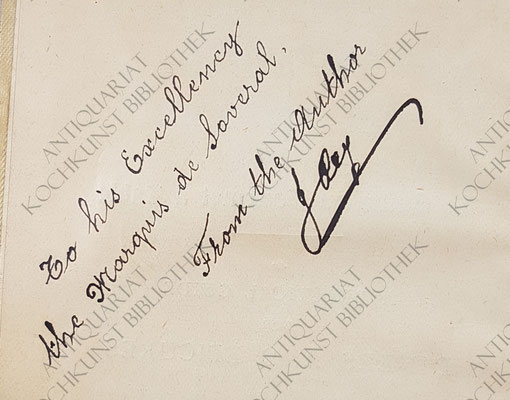 To his Excellency
the Marquis de Soveral.
From the Author
J Rey
ANTIQUARIAT
KOCHKUNST BIBLIOTHEK
ANTIQUARIAT
KOCHKUNST BIBLIOTHEK
ANTIQUARIAT
KOCHKUNST BIBLIOTHEK
ANTIQUARIAT
KOCHKUNST BIBLIOTHEK
ANTIQUARIAT
KOCHKUNST BIBLIOTHEK